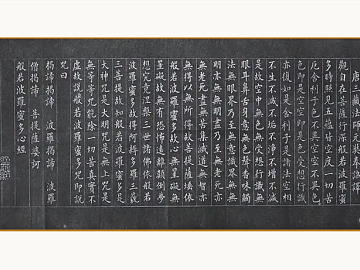 唐三藏法師玄奘奉詔譯
觀自在菩薩行深般若波羅蜜
多時照見五蘊皆空度一切苦
厄舍利子色不異空空不異色
色即是空空即是色受想行識
亦復如是舍利子是諸法空相
不生不滅不垢不淨不增不減
是故空中無色無受想行識無
眼耳鼻舌身意無色聲香味觸
法無眼界乃至無意識界無無
明亦無無明盡乃至無老死亦
無老死盡無苦集滅道無智亦
無得以無所得故菩提薩埵依
般若波羅蜜多故心無罣礙無
罣礙故無有恐怖遠離顛倒夢
想究竟涅槃三世諸佛依般若
波羅蜜多故得阿耨多羅三藐
三菩提故知般若波羅蜜多是
大神咒是大明咒是無上咒是
無等等咒能除一切苦真實不
虛故說般若波羅蜜多咒即說
咒曰
揭諦揭諦 波羅揭諦 波羅
僧揭諦 菩提薩婆訶
般若波羅蜜多心經